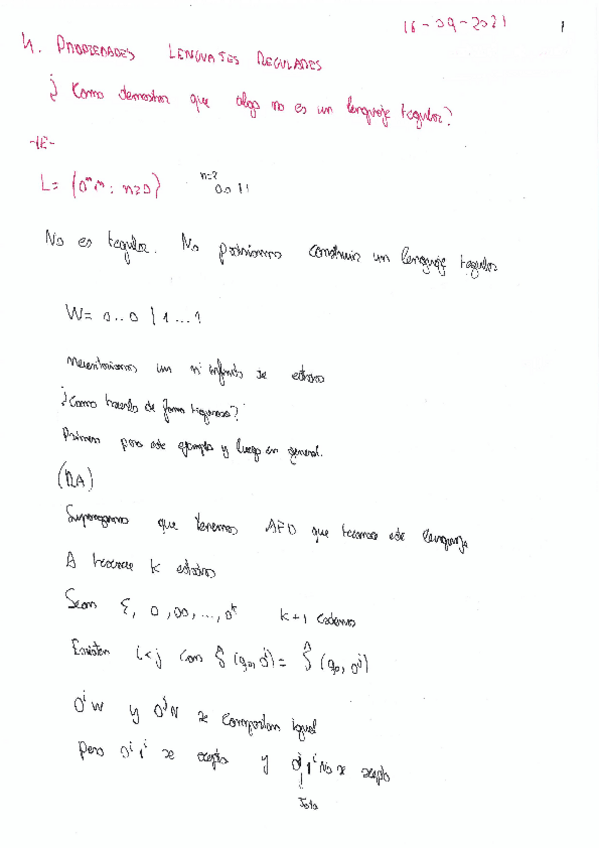 16-09-2021 1
4. PROPIEDADES LENGUAJES REGULARES
¿Como demostrar que algo no es un lenguaje regular?
-IE-
L= {0ⁿ1ⁿ: n≥0} n=2 0011
No es regular. No podríamos construir un lenguaje regular
W= 0..0 | 1...1
Necesitaríamos un nº infinito de estados
¿Como hacerlo de forma rigurosa?
Primero para este ejemplo y luego en general.
(RA)
Supongamos que tenemos AFD que reconoce este lenguaje
A reconoce k estados
Sean Ɛ, 0, 00, ..., 0ᵏ k+1 cadenas
Existen i<j con δ̂(q₀, 0ⁱ) = δ̂(q₀, 0ʲ)
0ⁱw y 0ʲw se comportan igual
Pero 0ⁱ1ⁱ se acepta y 0ʲ1ⁱ No se acepta
Jota